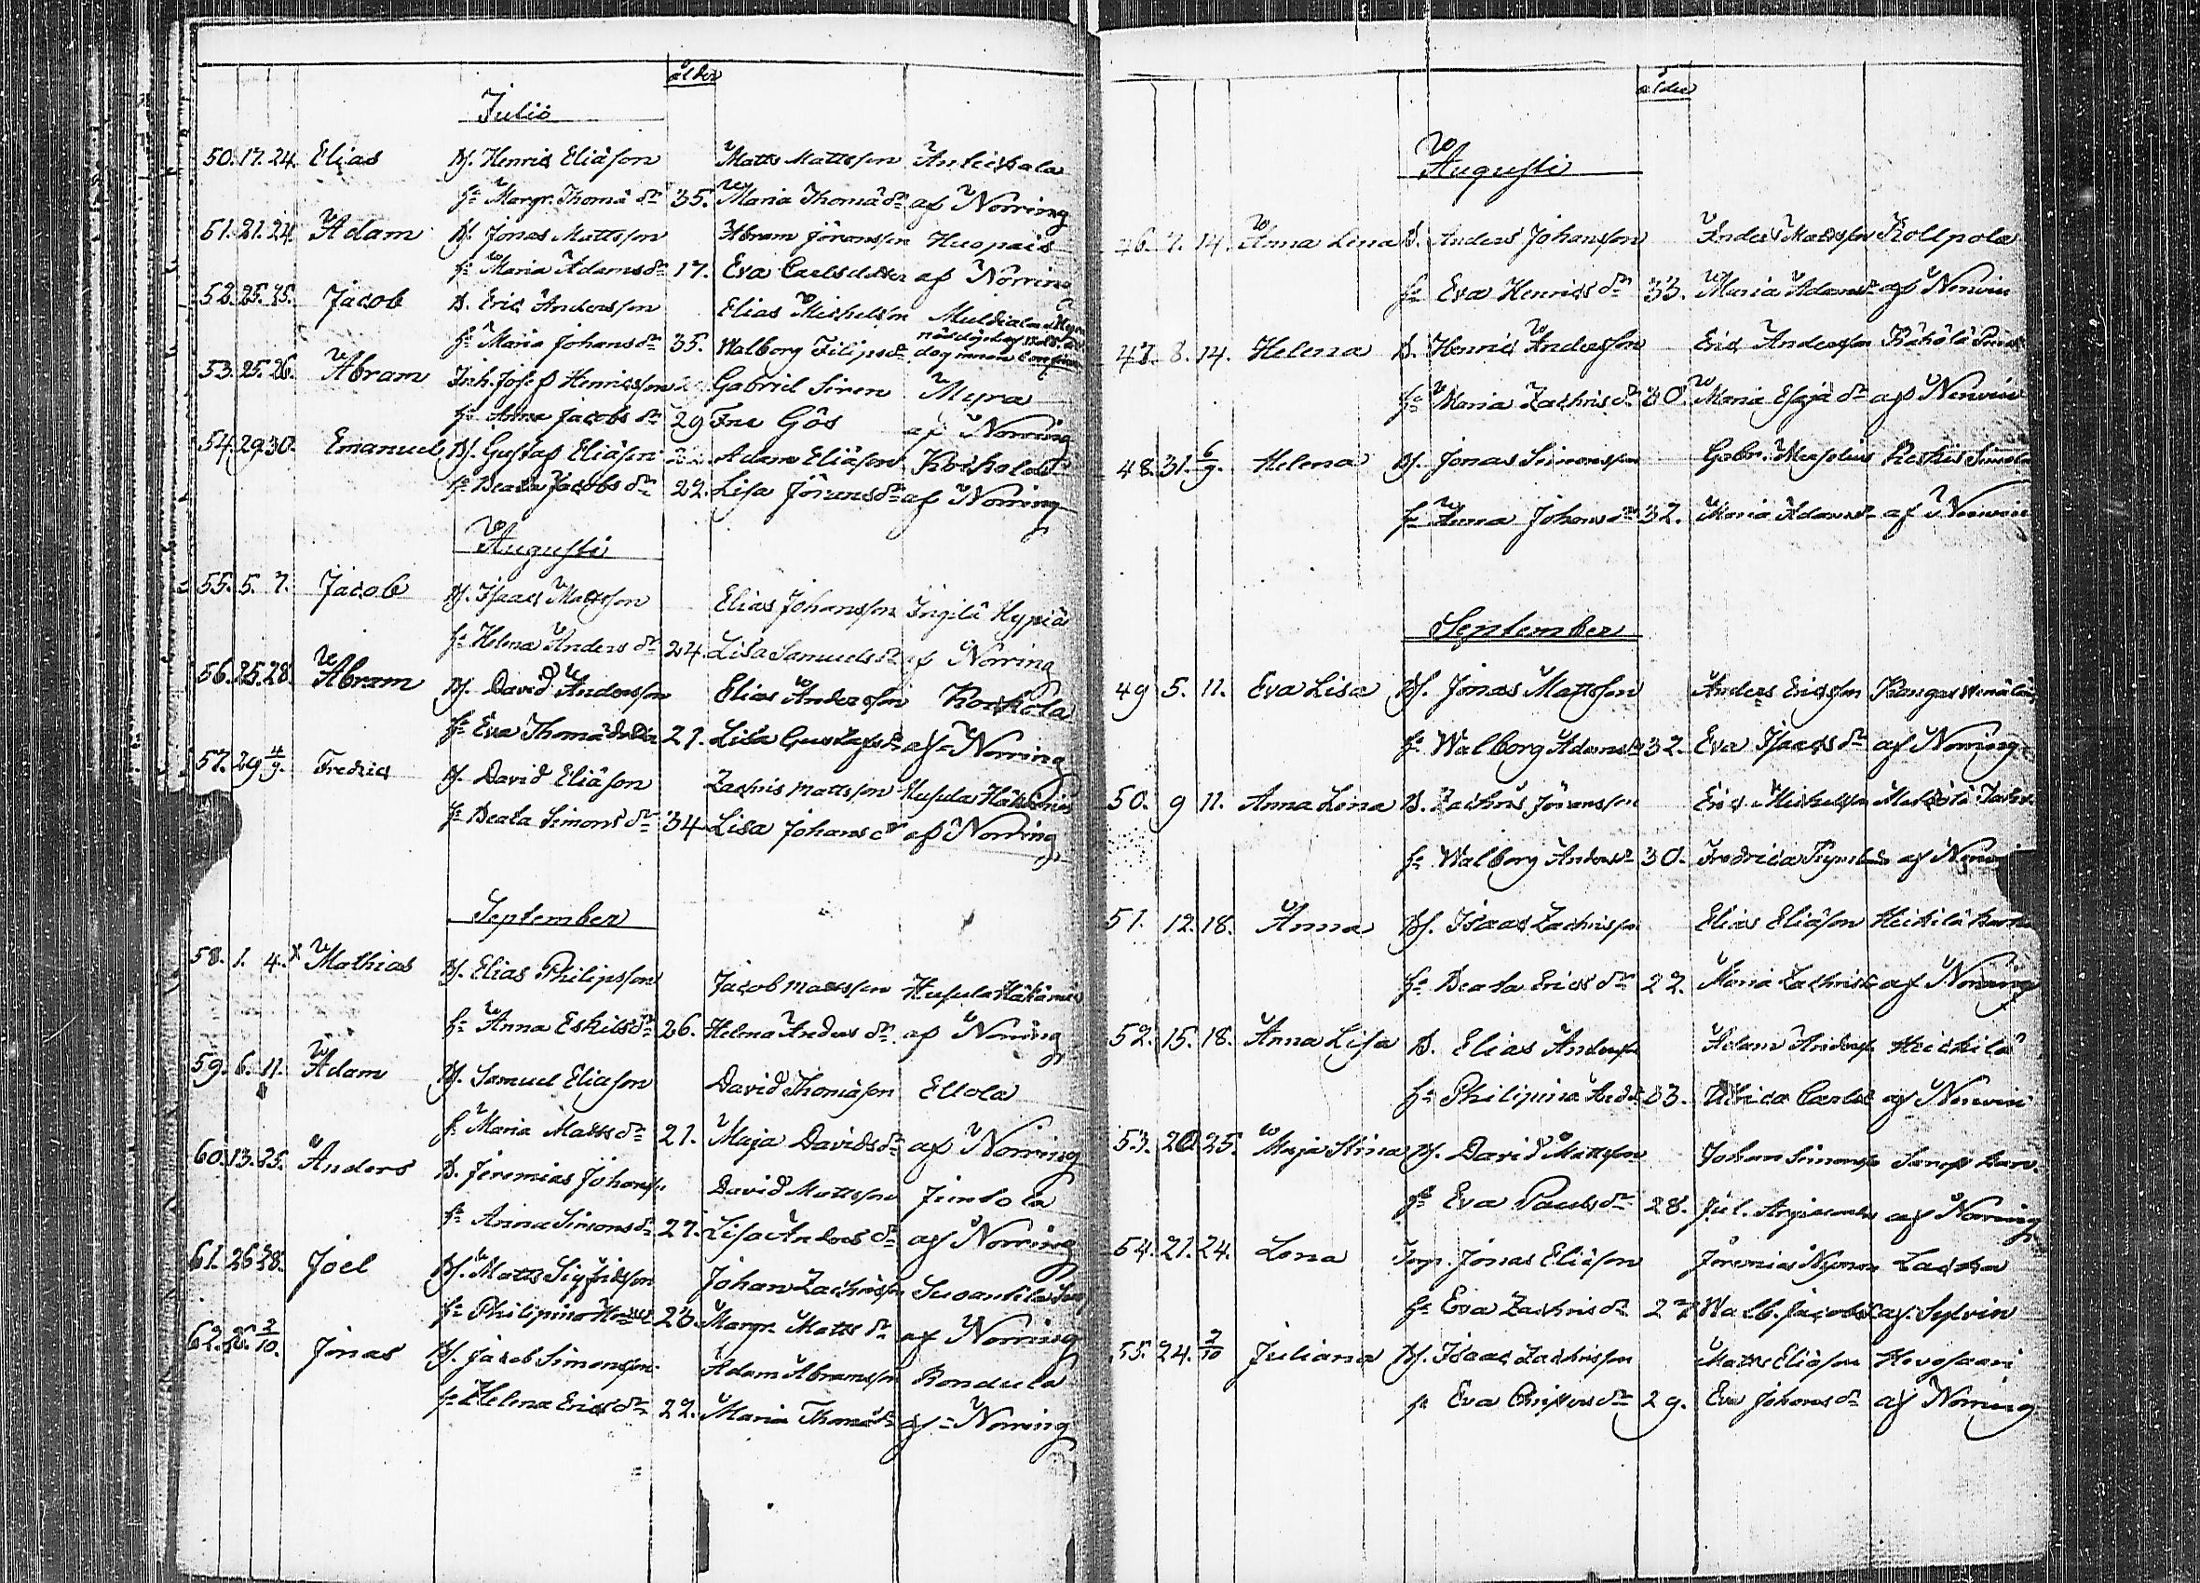 ålder
Julii
50. 17. 24. Elias B. Henric Eliäson Matts Mattsson Anteikala
hu Margr. Thomä dr 35. Maria Thomä dr af Norring
51. 21. 24. Adam B. Jonas Mattsson Abram Göransson Huopais
hu Maria Adamsdr 17. Eva Carlsdotter af Norring
52. 25. 25. Jacob B. Eric Andersson Elias Michelsson
hu Maria Johansdr 35. Walborg Filipsdr
53. 25. 26. Abram Inh. Josef Henricsson Gabriel Siren Myra
hu Anna Jacobs dr 29 Fru Gös af Norring
54. 29. 30. Emanuel B. Gustaf Eliäson Adam Eliäson
hu Beata Jacobs dr 22. Lisa Göransdr af Norring
Augusti
55. 5. 7. Jacob B. Isaac Mattsson Elias Johansson Ingilä Hypiä
hu Helena Anders dr 24. Lisa Samuels dr af Norring
56. 25. 28. Abram B. David Andersson Elias Andersson Korkola
hu Eva Thomä dotter 21. Lisa Gustafsdr af Norring
57. 29 4/9. Fredric B. David Eliäson Zachris Mattsson Husula
hu Beata Simons dr 34 Lisa Johans dr af Norring
September
58. 1. 4. x Mathias B. Elias Philipsson Jacob Mattsson Husula
hu Anna Eskilsdr 26. Helena Anders dr af Norring
59. 6. 11. Adam B. Samuel Eliason David Thomäson Ellola
hu Maria Mattsdr 21. Maja Davidsdr af Norring
60. 13. 25. Anders D. Jeremias Johanss. David Mattsson
hu Anna Simonsdr 27. Lisa Anders dr af Norring
61. 26 28. Joel B. Matts Sigfridsson Johan Zachrisson
hu Philipina 23. Margr. Matts dr af Norring
62. 26. 2/10. Jonas B. Jacob Simonsson Adam Abramsson
hu Helena Ericsdr 22. Maria Thomädr af Norring
ålder
Augusti
46. 7. 14. Anna Lena D. Anders Johansson Anders Mattsson Kollpola
hu Eva Henrics dr 33. Maria Adamsdr af
47. 8. 14. Helena D. Henric Andersson Eric Andersson
hu Maria Zachris dr 30. Maria Esajä dr af
48. 31. 6/9. Helena B. Jonas Simonsson Gabr.
hu Anna Johansdr 32. Maria Adamsdr af
September
49 5. 11. Eva Lisa B. Jonas Mattsson Anders Ericsson
hu Walborg Adamsdr 32. Eva Isaacs dr af Norring
50. 9 11. Anna Lena D. Zachris Göransson Eric Michelsson
hu Walborg Andersdr 30. Fredrica af
51. 12. 18. Anna B. Isaac Zachrisson Elias Eliäson Heickilä
hu Beata Erics dr 22. Maria Zachrisdr af Norring
52. 15. 18. Anna Lisa D. Elias Anderss. Adam Anderss. Heickilä
hu Philipina 33. Ulrica Carlsdr af
53. 20. 25. Maja Stina B. David Mattsson Johan Simonsson
hu Eva Paulsdr 28. Jul. af Norring
54. 21. 24. Lena Torp. Jonas Eliäson Jeremias Nyman
hu Eva Zachris dr 27 Walb. Jacobsdr af Sylvin
55. 24. 2/10 Juliana B. Isaac Zachrisson Matts Eliäson Hevosaari
hu Eva dr 29. Eva Johans dr af Norring